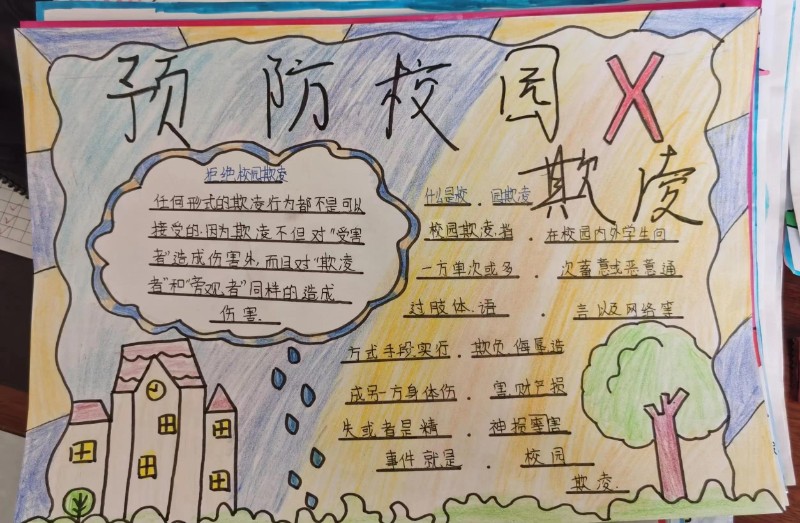 预防校园
欺凌
拒绝校园欺凌
任何形式的欺凌行为都不是可以
接受的.因为欺凌不但对"受害
者"造成伤害外,而且对"欺凌
者"和"旁观者"同样的造成
伤害.
什么是校.园欺凌
校园欺凌,指.在校园内外学生间
一方单次或多.次蓄意或恶意通
过肢体.语.言以及网络等
方式手段实行.欺负.侮辱造
成另一方身体伤.害.财产损
失或者是精.神损害
事件就是.校园
欺凌.